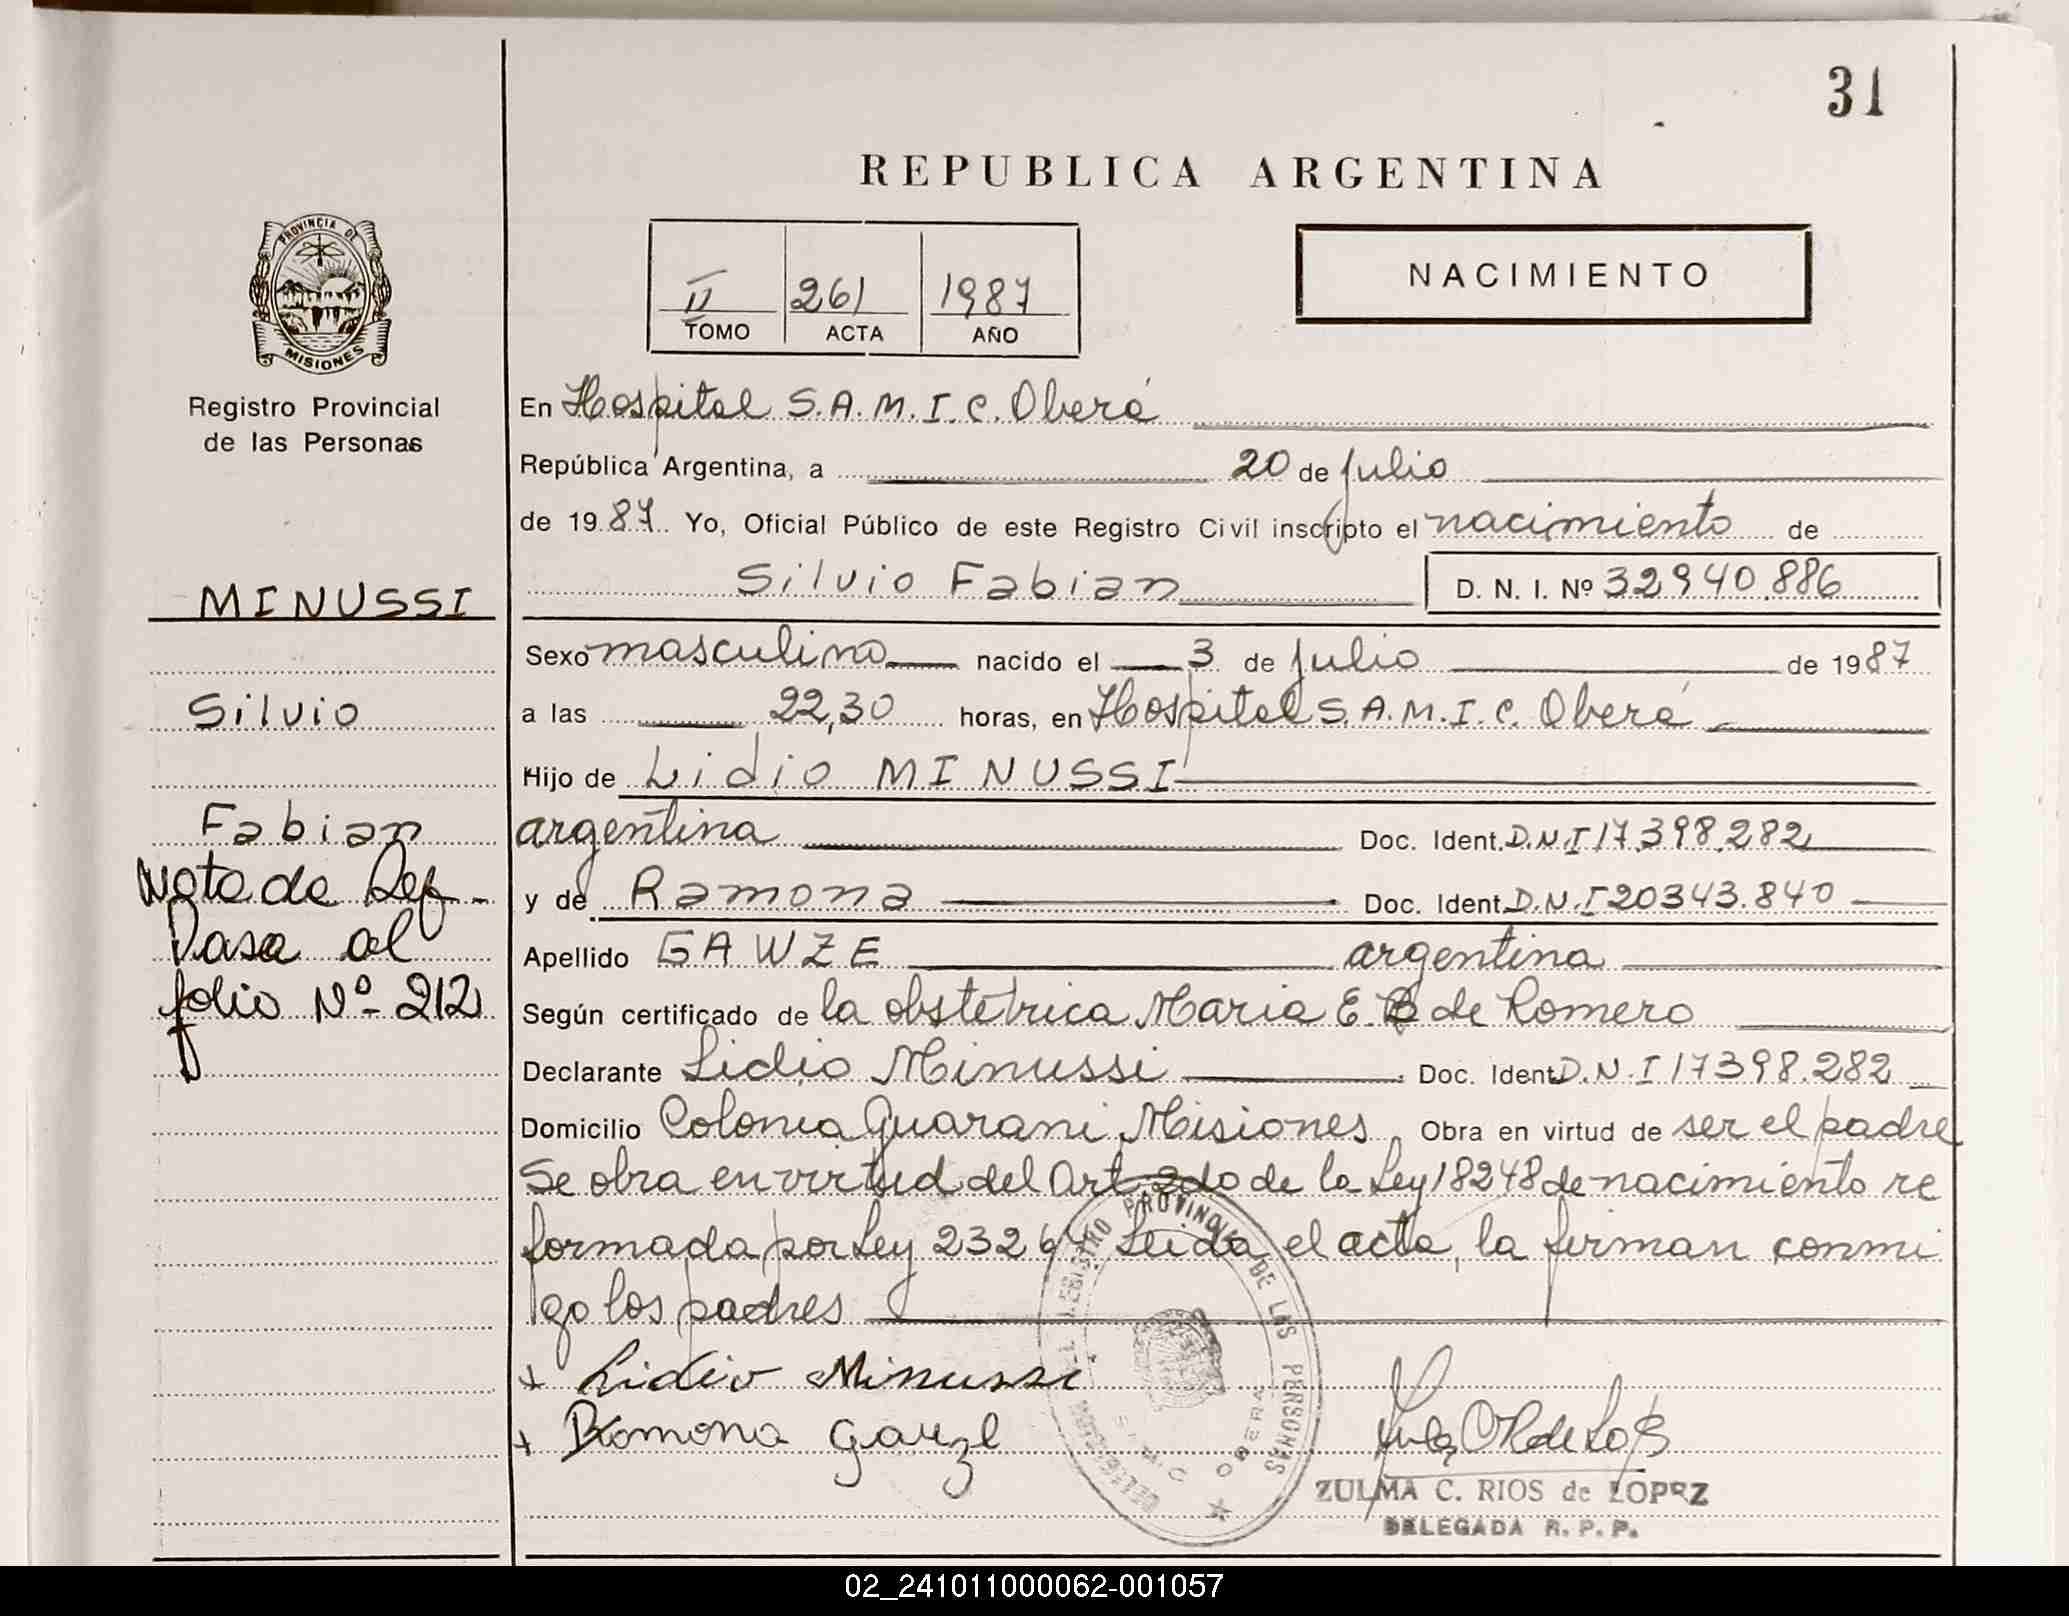 31
REPUBLICA ARGENTINA
PROVINCIA DE
MISIONES
Registro Provincial
de las Personas
II 261 1987
TOMO ACTA AÑO
NACIMIENTO
En Hospital S.A.M.I.C. Oberá
República Argentina, a 20 de julio
de 1987. Yo, Oficial Público de este Registro Civil inscripto el nacimiento de
Silvio Fabian D. N. I. Nº 32940.886
MINUSSI
Silvio
Fabian
Nota de Ref -
Pasa al
folio Nº- 212
Sexo masculino nacido el 3 de julio de 1987
a las 22,30 horas, en Hospital S.A.M.I.C. Oberá
Hijo de Lidio MINUSSI
argentina Doc. Ident. D.N.I 17.398.282
y de Ramona Doc. Ident. D.N.I 20343.840
Apellido GAWZE argentina
Según certificado de la obstetrica Maria E. B de Romero
Declarante Lidio Minussi Doc. Ident. D.N.I 17398.282
Domicilio Colonia Guarani Misiones Obra en virtud de ser el padre
Se obra en virtud del Art 2do de la Ley 18248 de nacimiento re
formada por Ley 23264 Leida el acta, la firman conmi
go los padres
+ Lidio Minussi
+ Romona
REGISTRO PROVINCIAL DE LAS PERSONAS
OBERA
ZULMA C. RIOS de LOPEZ
DELEGADA R. P. P.
02_241011000062-001057